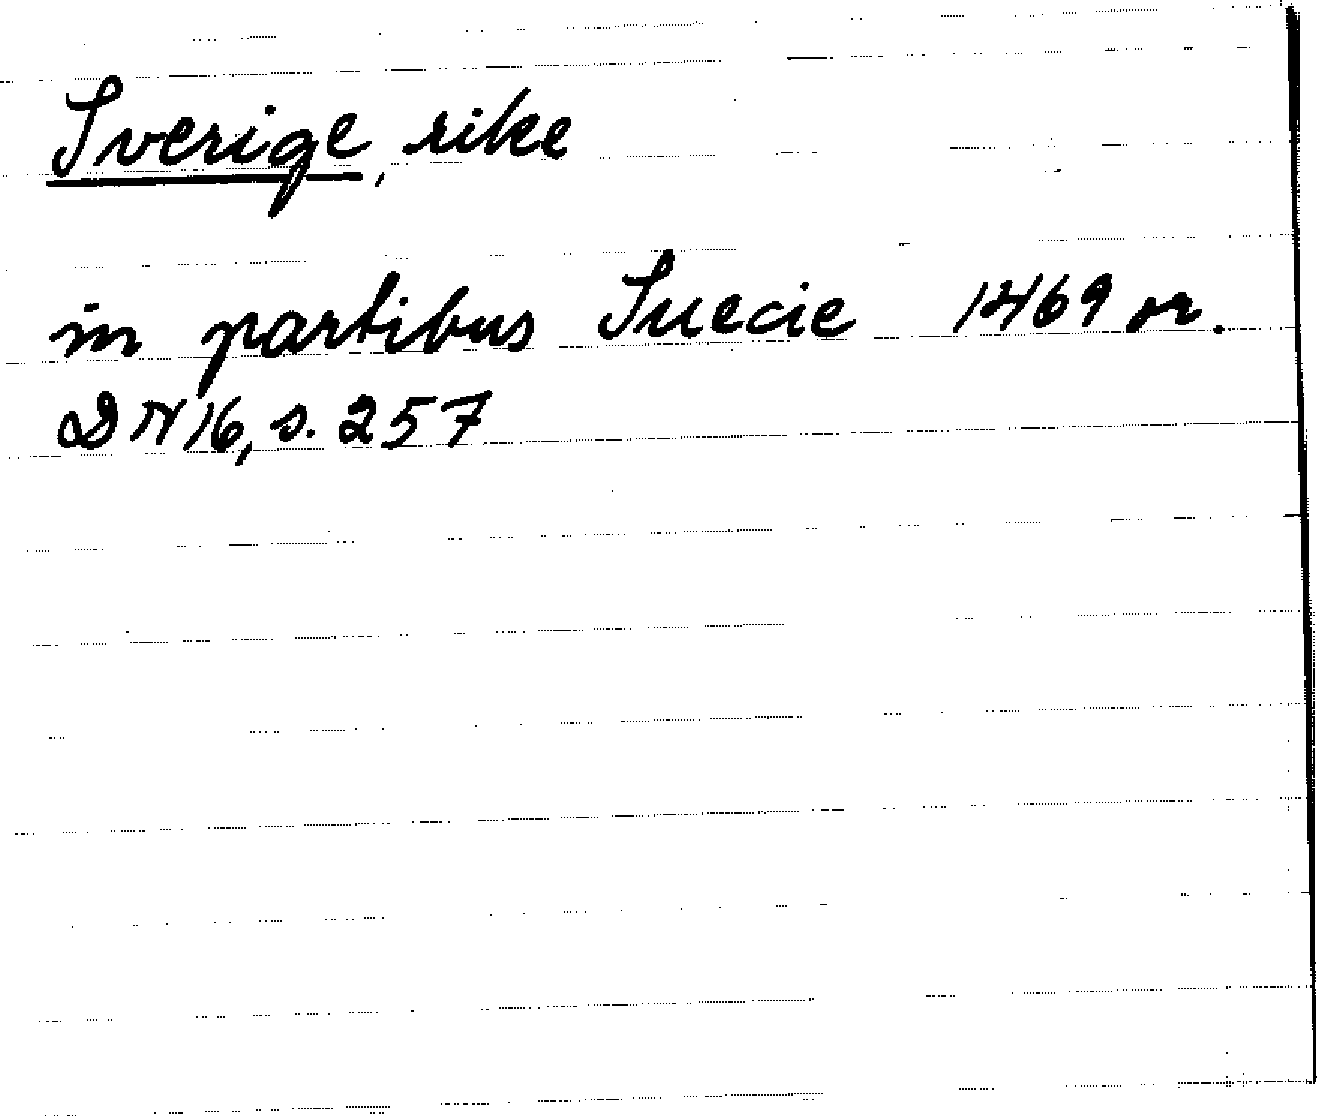 Sverige, rike
in partibus Suecie 1469 or.
DN 16, s. 257